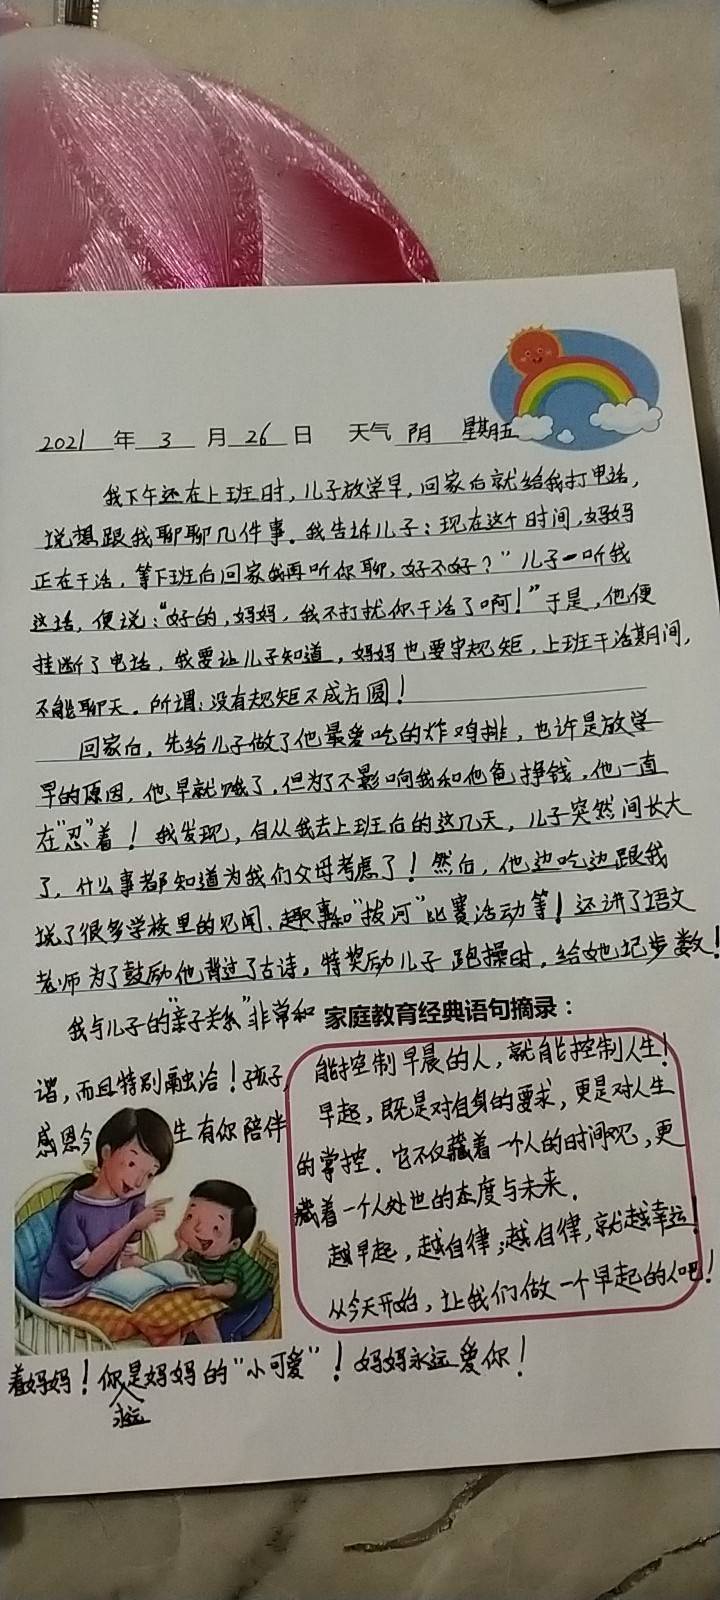 2021 年 3 月 26 日 天气 阴 星期五
我下午还在上班时，儿子放学早，回家后就给我打电话，
说想跟我聊聊几件事。我告诉儿子：现在这个时间，妈妈
正在干活，等下班后回家我再听你聊，好不好？”儿子一听我
这话，便说：“好的，妈妈，我不打扰你干活了啊！”于是，他便
挂断了电话，我要让儿子知道，妈妈也要守规矩，上班干活期间，
不能聊天。所谓：没有规矩不成方圆！
回家后，先给儿子做了他最爱吃的炸鸡排，也许是放学
早的原因，他早就饿了，但为了不影响我和他爸挣钱，他一直
在“忍”着！我发现，自从我去上班后的这几天，儿子突然间长大
了，什么事都知道为我们父母考虑了！然后，他边吃边跟我
说了很多学校里的见闻、趣事和“拔河”比赛活动等！还讲了语文
老师为了鼓励他背过了古诗，特奖励儿子跑操时，给她记步数！
我与儿子的“亲子关系”非常和
谐，而且特别融洽！孩子，
感恩今生有你陪伴
着妈妈！你永远是妈妈的“小可爱”！妈妈永远爱你！
家庭教育经典语句摘录：
能控制早晨的人，就能控制人生！
早起，既是对自身的要求，更是对人生
的掌控．它不仅藏着一个人的时间观，更
藏着一个人处世的态度与未来．
越早起，越自律；越自律，就越幸运！
从今天开始，让我们做一个早起的人吧！